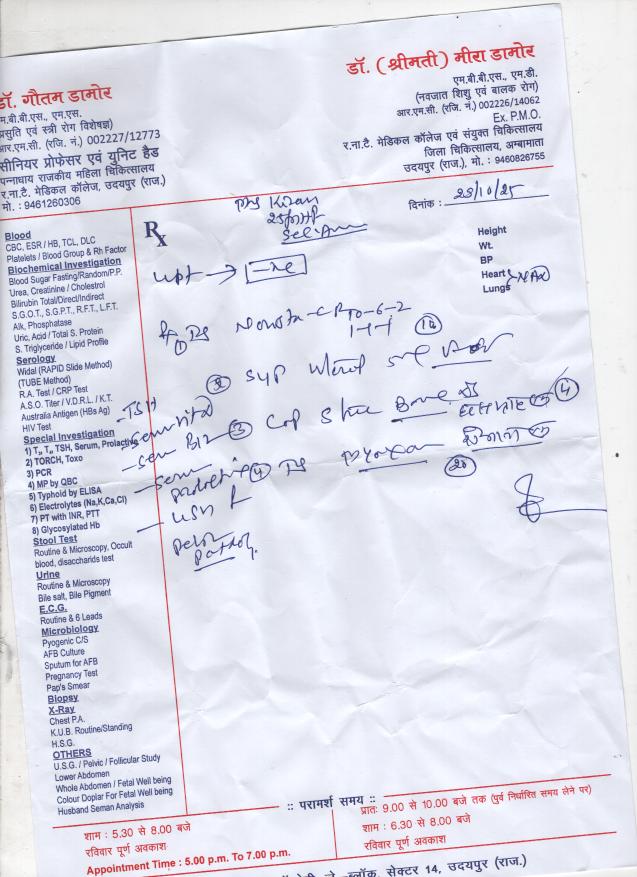 डॉ. गौतम डामोर
म.बी.बी.एस., एम.एस.
प्रसुति एवं स्त्री रोग विशेषज्ञ)
आर.एम.सी. (रजि. नं.) 002227/12773
सीनियर प्रोफेसर एवं युनिट हैड
पन्नाधाय राजकीय महिला चिकित्सालय
र.ना.टै. मेडिकल कॉलेज, उदयपुर (राज.)
मो. : 9461260306
डॉ. (श्रीमती) मीरा डामोर
एम.बी.बी.एस., एम.डी.
(नवजात शिशु एवं बालक रोग)
आर.एम.सी. (रजि. नं.) 002226/14062
Ex. P.M.O.
र.ना.टै. मेडिकल कॉलेज एवं संयुक्त चिकित्सालय
जिला चिकित्सालय, अम्बामाता
उदयपुर (राज.), मो. : 9460826755
Rx
Kiran
दिनांक : 23/10/25
Height
Wt.
BP
Heart
Lungs NAD
upt → -ve
1-1-1
② syp
③ Cap
④
TSH
USG
Blood
CBC, ESR / HB, TCL, DLC
Platelets / Blood Group & Rh Factor
Biochemical Investigation
Blood Sugar Fasting/Random/P.P.
Urea, Creatinine / Cholestrol
Bilirubin Total/Direct/Indirect
S.G.O.T., S.G.P.T., R.F.T., L.F.T.
Alk, Phosphatase
Uric, Acid / Total S. Protein
S. Triglyceride / Lipid Profile
Serology
Widal (RAPID Slide Method)
(TUBE Method)
R.A. Test / CRP Test
A.S.O. Titer / V.D.R.L. / K.T.
Australia Antigen (HBs Ag)
HIV Test
Special Investigation
1) T₃, T₄, TSH, Serum, Prolactive
2) TORCH, Toxo
3) PCR
4) MP by QBC
5) Typhoid by ELISA
6) Electrolytes (Na,K,Ca,Cl)
7) PT with INR, PTT
8) Glycosylated Hb
Stool Test
Routine & Microscopy, Occult
blood, disaccharids test
Urine
Routine & Microscopy
Bile salt, Bile Pigment
E.C.G.
Routine & 6 Leads
Microbiology
Pyogenic C/S
AFB Culture
Sputum for AFB
Pregnancy Test
Pap's Smear
Biopsy
X-Ray
Chest P.A.
K.U.B. Routine/Standing
H.S.G.
OTHERS
U.S.G. / Pelvic / Follicular Study
Lower Abdomen
Whole Abdomen / Fetal Well being
Colour Doplar For Fetal Well being
Husband Seman Analysis
:: परामर्श समय ::
शाम : 5.30 से 8.00 बजे
रविवार पूर्ण अवकाश
Appointment Time : 5.00 p.m. To 7.00 p.m.
प्रातः 9.00 से 10.00 बजे तक (पुर्व निर्धारित समय लेने पर)
शाम : 6.30 से 8.00 बजे
रविवार पूर्ण अवकाश
ब्लॉक, सेक्टर 14, उदयपुर (राज.)